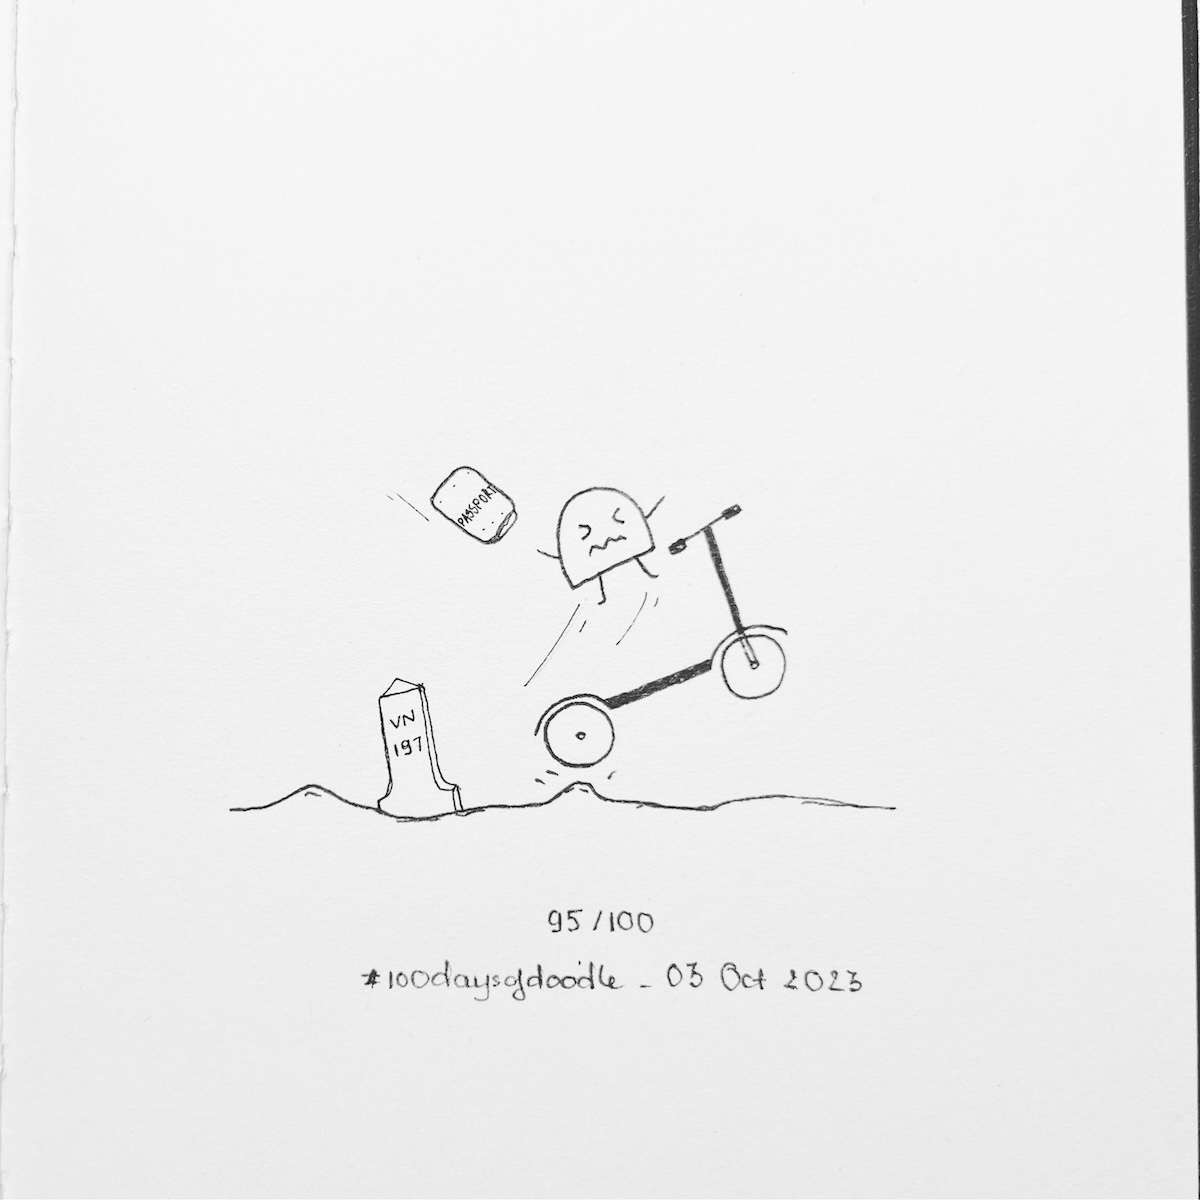 PASSPORT
VN
197
95/100
#100daysofdoodle - 03 Oct 2023